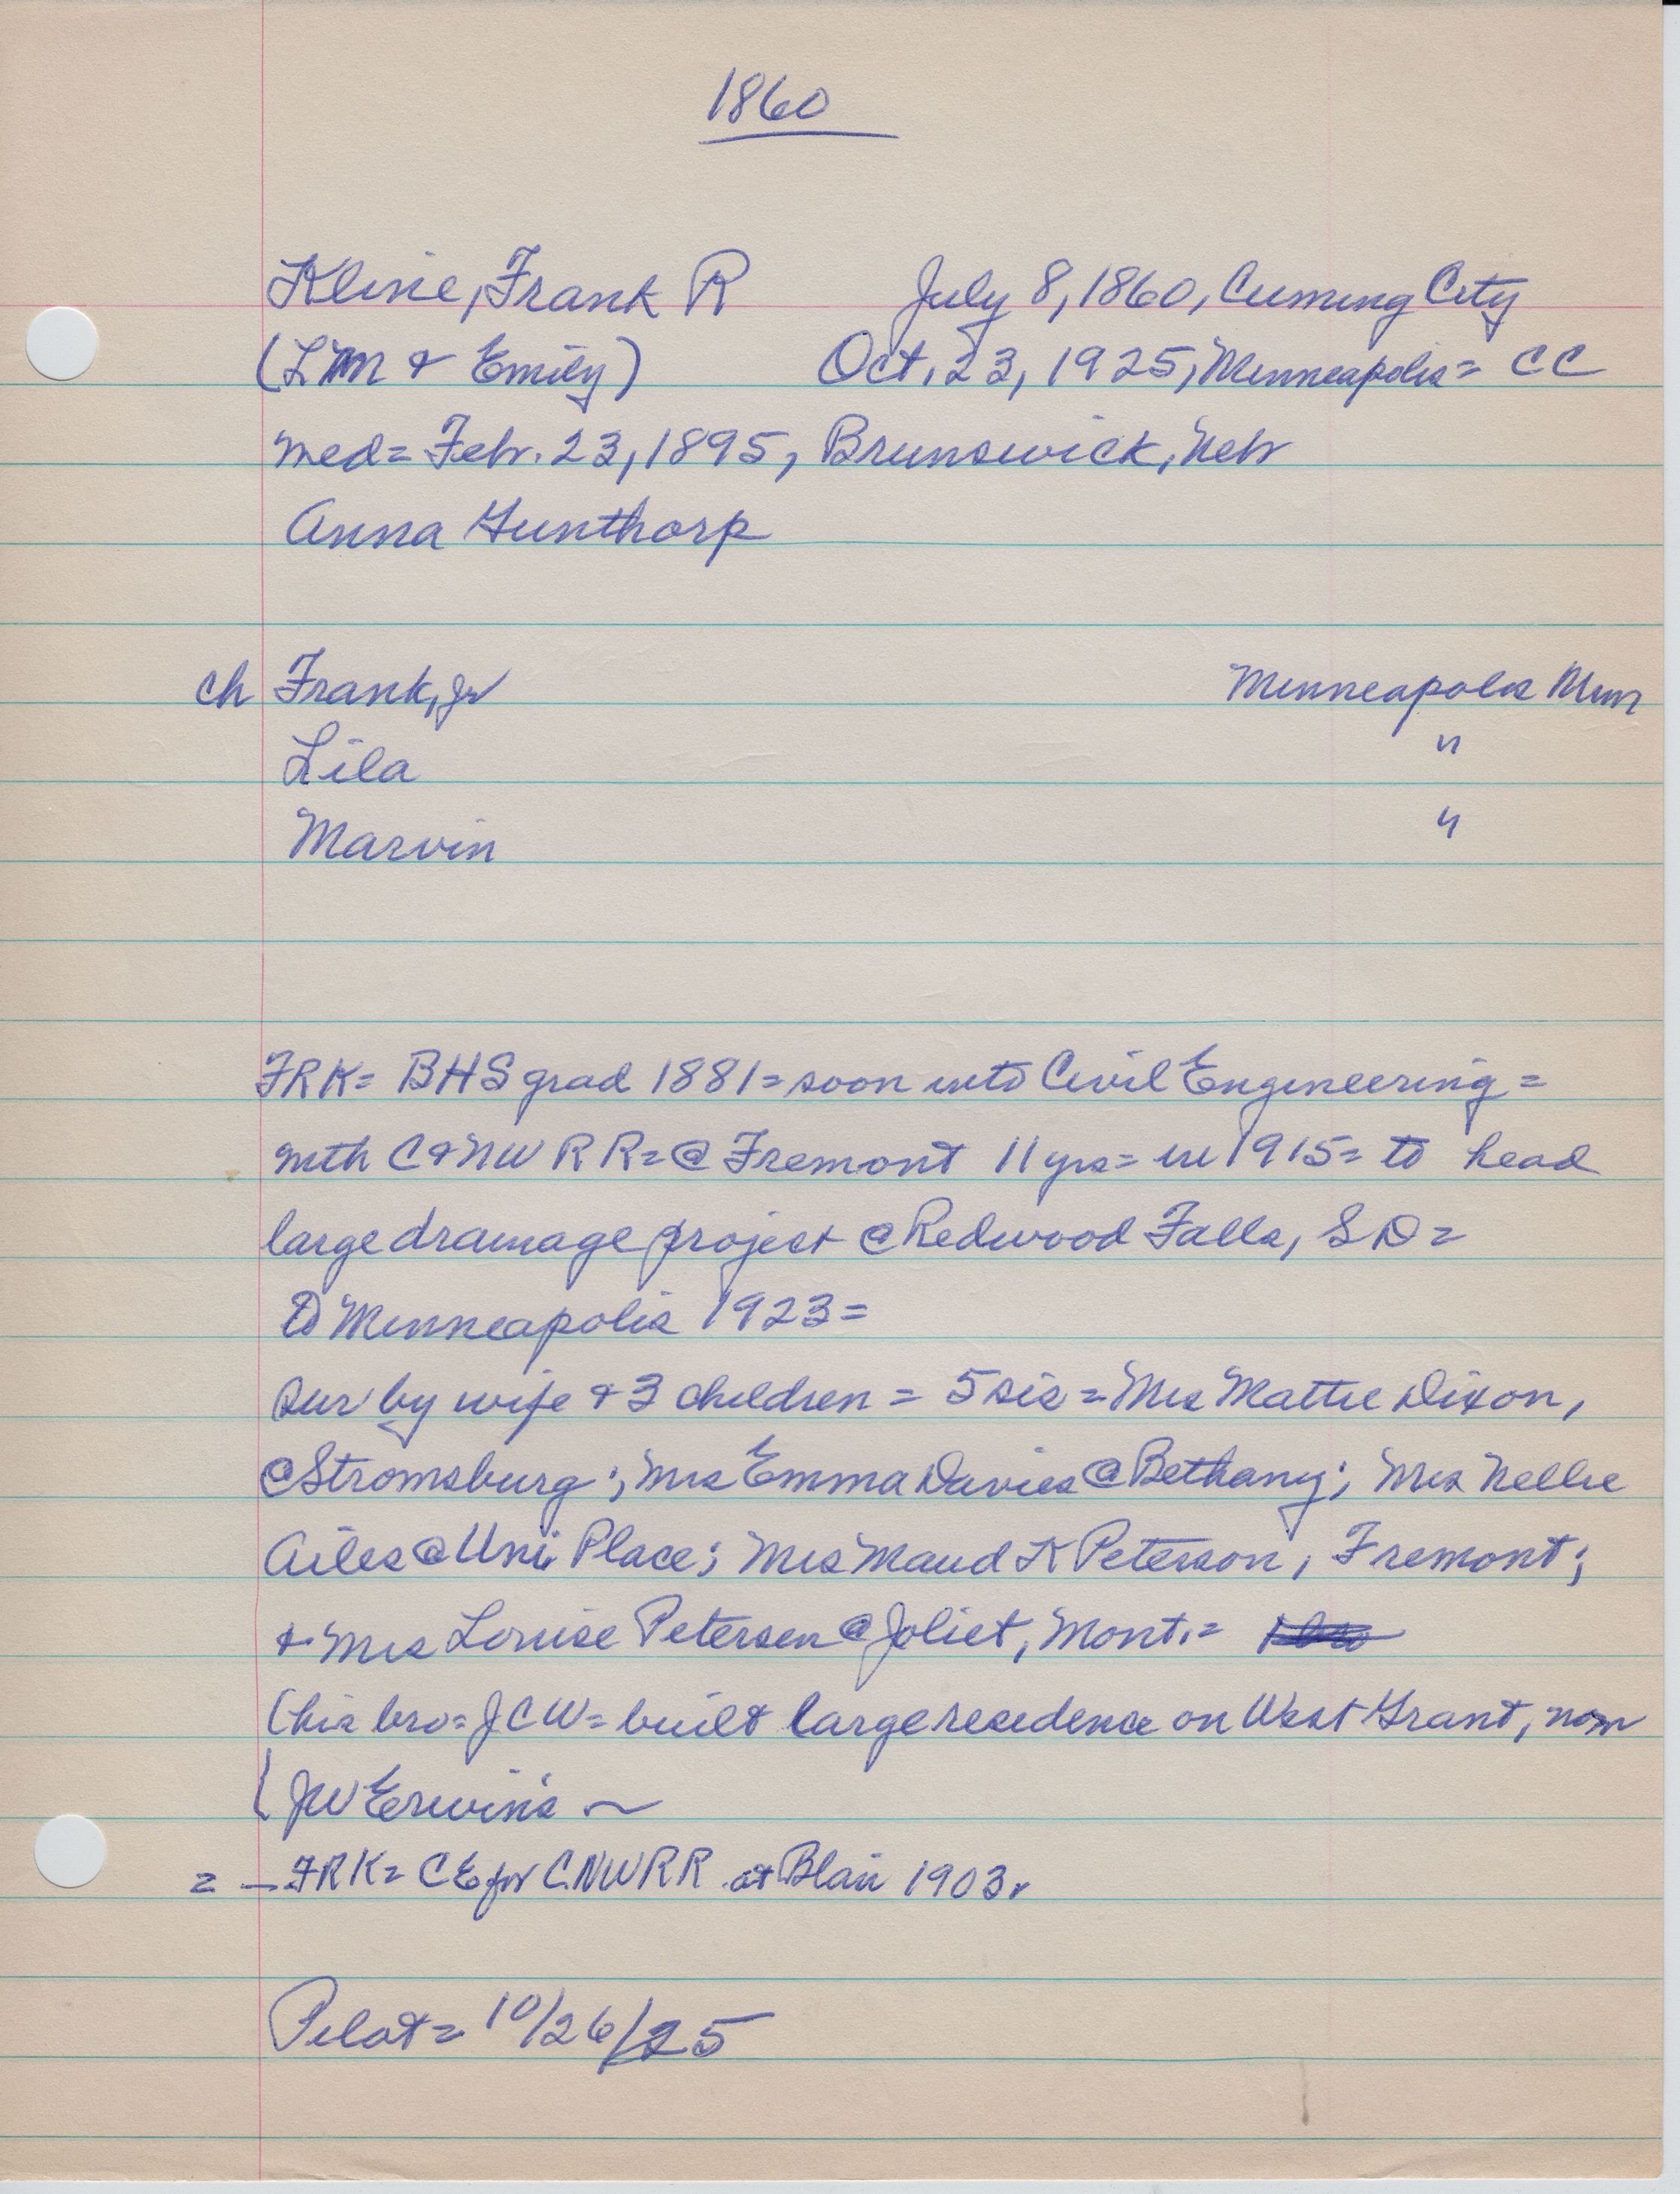 1860
Kline, Frank R July 8, 1860, Cuming City
(LM & Emily) Oct. 23, 1925, Minneapolis = CC
med = Febr. 23, 1895, Brunswick, Nebr
Anna Gunthorp
ch Frank, Jr Minneapolis Minn
Lila "
Marvin "
FRK = BHS grad 1881 = soon into Civil Engineering =
with C&NW RR = @ Fremont 11 yrs = in 1915 = to head
large drainage project @ Redwood Falls, SD =
to Minneapolis 1923 =
sur by wife & 3 children = 5 sis = Mrs Mattie Dixon,
@ Stromsburg; Mrs Emma Davies @ Bethany; Mrs Nellie
Ailes @ Uni Place; Mrs Maud K Peterson, Fremont;
& Mrs Louise Petersen @ Joliet, Mont. =
(his bro = JCW = built large residence on West Grant, now
(JW Erwin's ~
= — FRK = CE for CNWRR at Blair 1903.
Pilot = 10/26/25